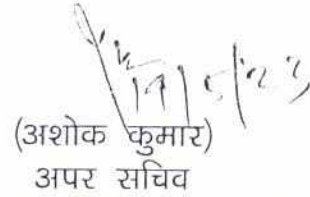 (अशोक कुमार)
अपर सचिव